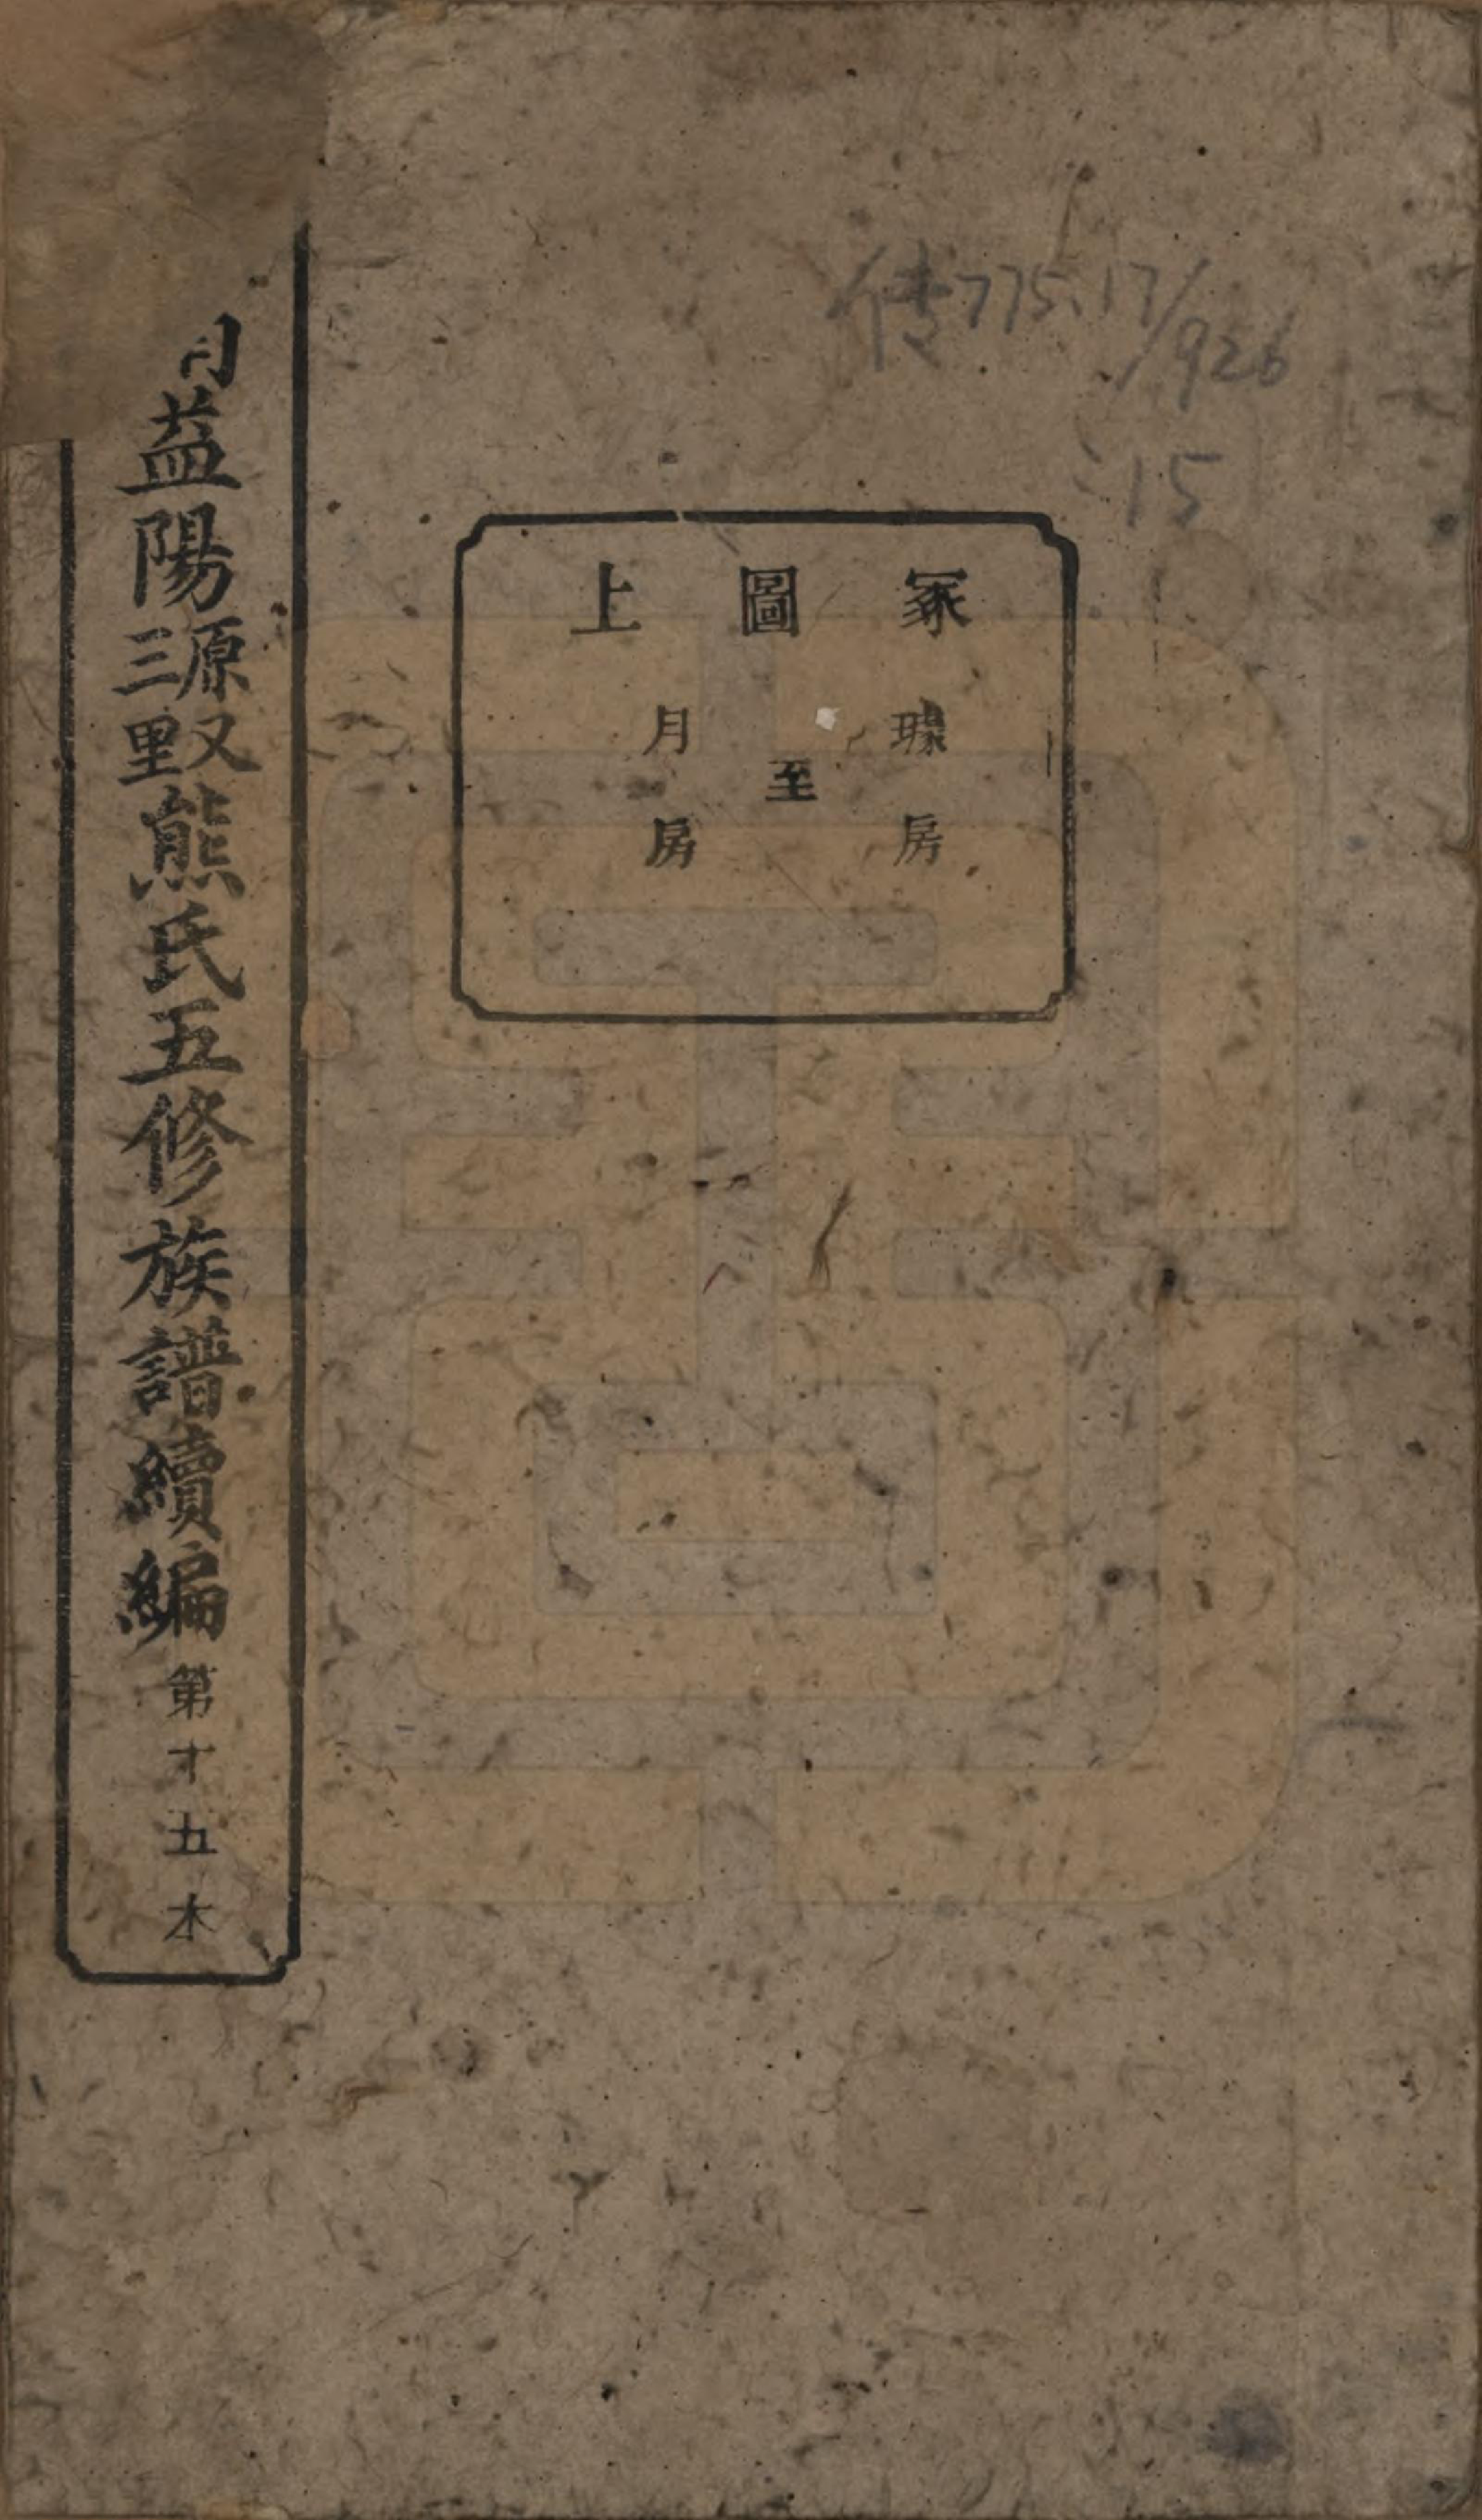 传775.17/926
:15
冢圖上
璟房
至
月房
益陽原又三里熊氏五修族譜續編第十五本